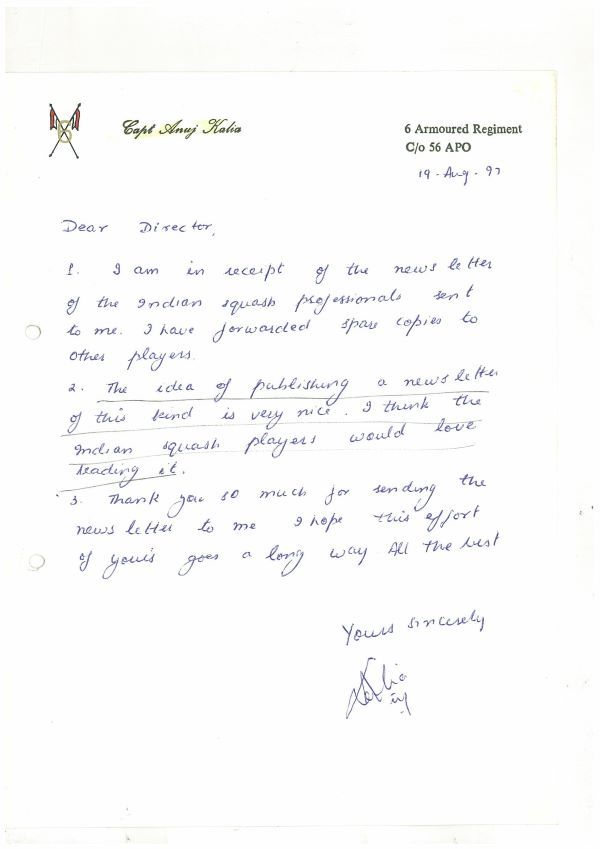 Capt Anuj Kalia
6 Armoured Regiment
C/o 56 APO
19 - Aug - 97
Dear Director,
1. I am in receipt of the news letter
of the Indian squash professionals sent
to me. I have forwarded spare copies to
other players.
2. The idea of publishing a news letter
of this kind is very nice. I think the
Indian squash players would love
reading it.
3. Thank you so much for sending the
news letter to me I hope this effort
of your's goes a long way All the best
Yours Sincerely